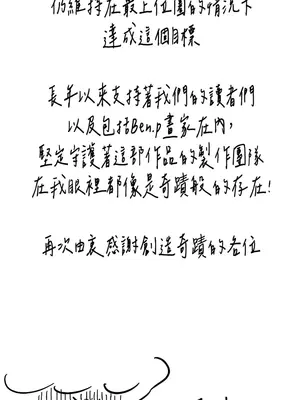 仍維持在最上位圈的情況下
達成這個目標
長年以來支持著我們的讀者們
以及包括Ben.p畫家在內,
堅定守護著這部作品的製作團隊
在我眼裡都像是奇蹟般的存在!
再次由衷感謝創造奇蹟的各位